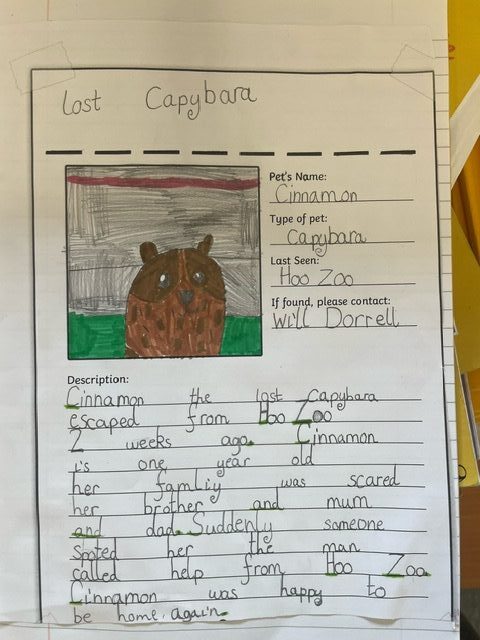 lost Capybara
Pet's Name:
Cinnamon
Type of pet:
Capybara
Last Seen:
Hoo Zoo
If found, please contact:
Will Dorrell
Description:
Cinnamon the lost Capybara
escaped from Hoo Zoo
2 weeks ago. Cinnamon
is one year old
her famliy was scared
her brother and mum
and dad. Suddenly someone
spoted her the man
called help from Hoo Zoo.
Cinnamon was happy to
be home again.